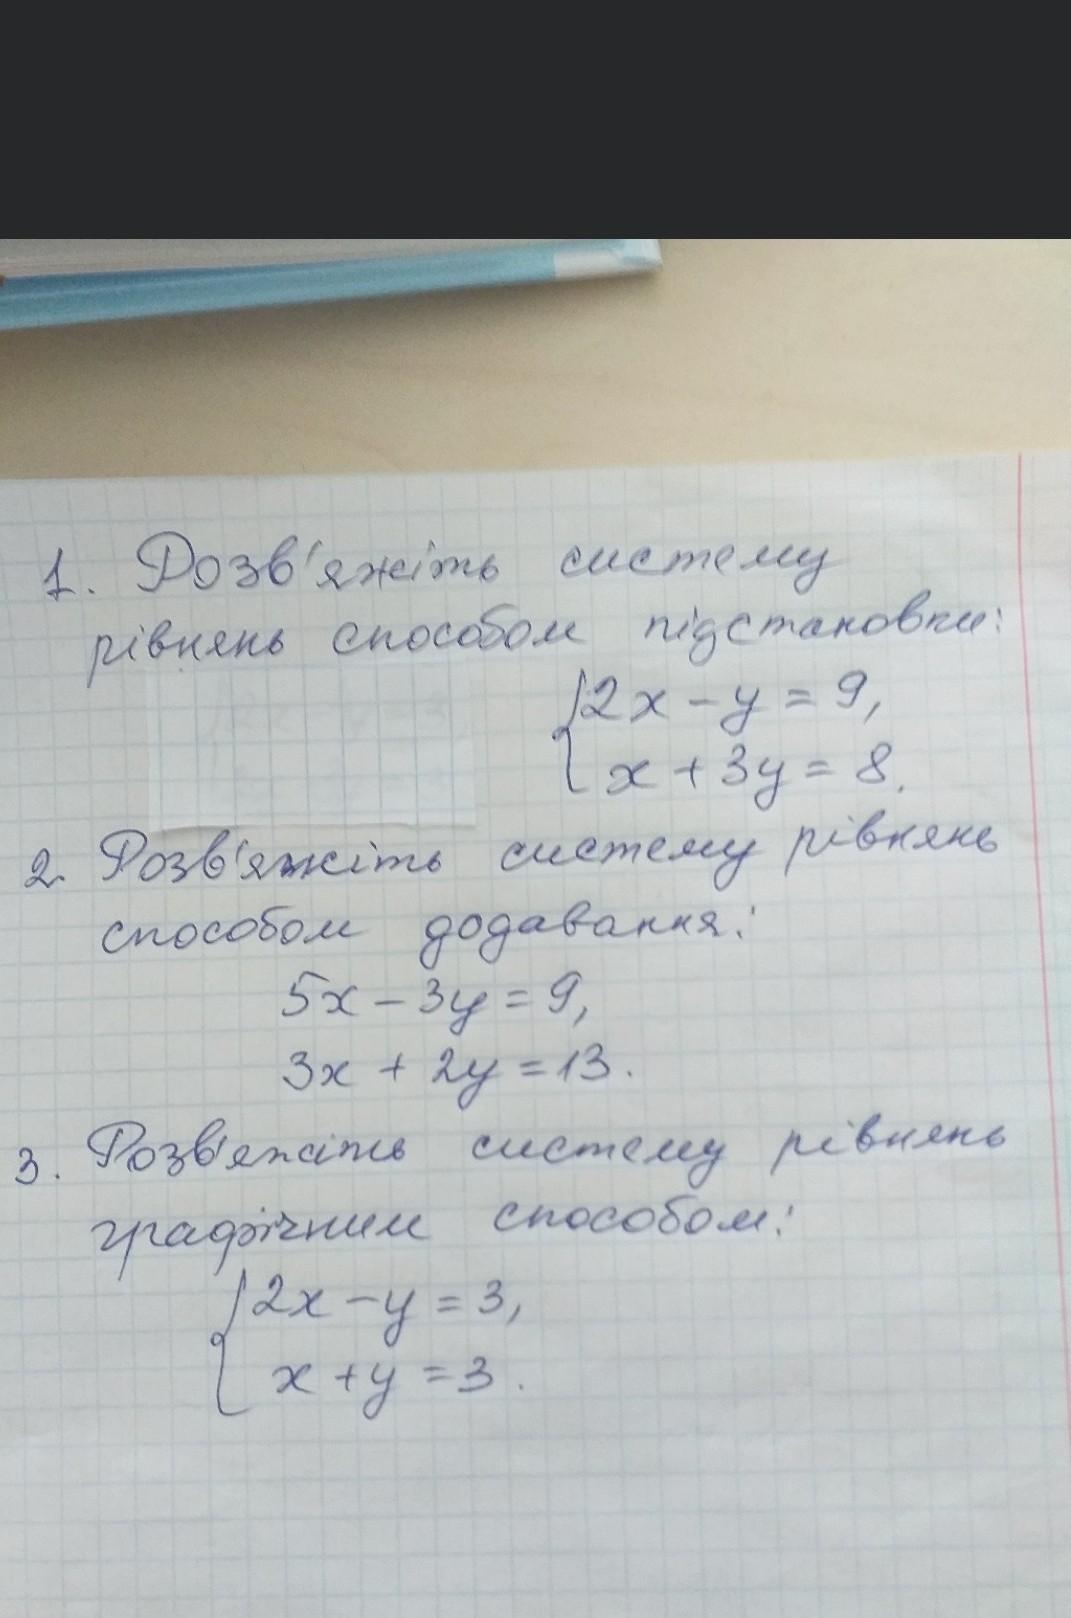 1. Розв'яжіть систему
рівнянь способом підстановки:
2x - y = 9,
x + 3y = 8.
2. Розв'яжіть систему рівнянь
способом додавання:
5x - 3y = 9,
3x + 2y = 13.
3. Розв'яжіть систему рівнянь
графічним способом:
2x - y = 3,
x + y = 3.